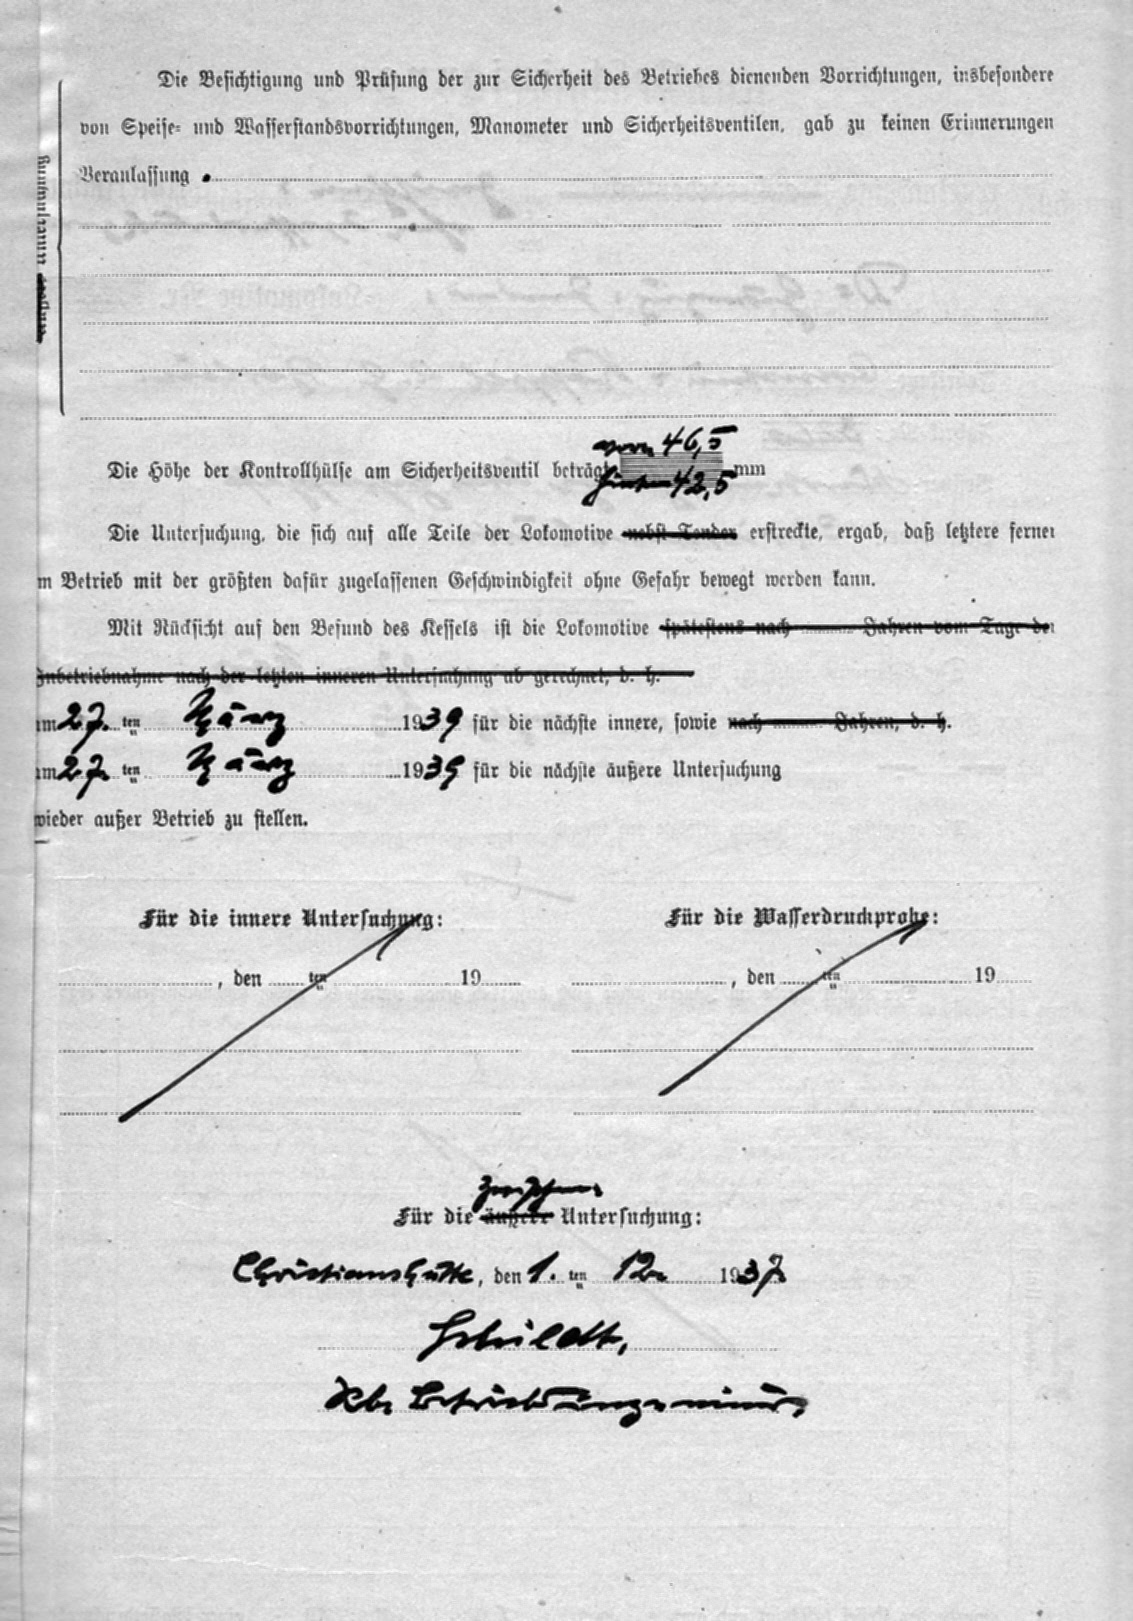 Die Besichtigung und Prüfung der zur Sicherheit des Betriebes dienenden Vorrichtungen, insbesondere
von Speise= und Wasserstandsvorrichtungen, Manometer und Sicherheitsventilen, gab zu keinen Erinnerungen
Veranlassung .
vorn 46,5
Die Höhe der Kontrollhülse am Sicherheitsventil beträgt mm
hinten 42,5
Die Untersuchung, die sich auf alle Teile der Lokomotive nebst Tender erstreckte, ergab, daß letztere ferner
m Betrieb mit der größten dafür zugelassenen Geschwindigkeit ohne Gefahr bewegt werden kann.
Mit Rücksicht auf den Befund des Kessels ist die Lokomotive spätestens nach Jahren vom Tage der
Inbetriebnahme nach der letzten inneren Untersuchung ab gerechnet, d. h.
am 27. ten März 1939 für die nächste innere, sowie nach Jahren, d. h.
am 27. ten März 1939 für die nächste äußere Untersuchung
wieder außer Betrieb zu stellen.
Für die innere Untersuchung:
, den ten 19
Für die Wasserdruckprobe:
, den ten 19
Zwischen
Für die äußere Untersuchung:
Christianshütte, den 1. ten 12. 1937
Betriebsingenieur,